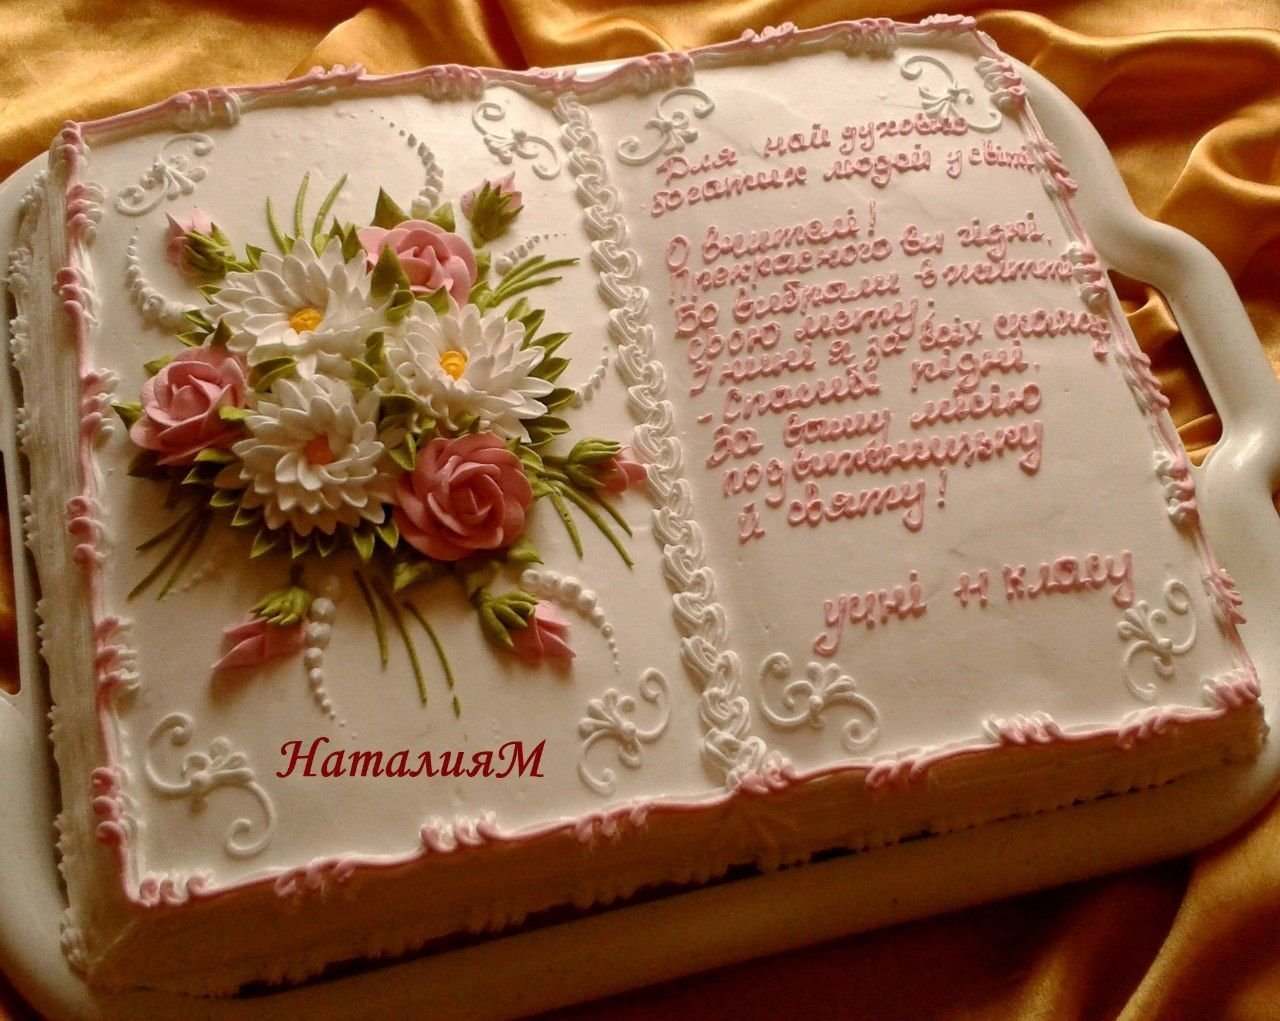 Для най духовно
богатих людей у світі
О вчителі!
Прекрасного ви гідні,
Бо вибрали в житті
свою мету.
У мні я за всіх скажу
- Спасибі рідні,
За вашу місію
подвижницьку
й святу!
учні 11 класу
НаталияМ